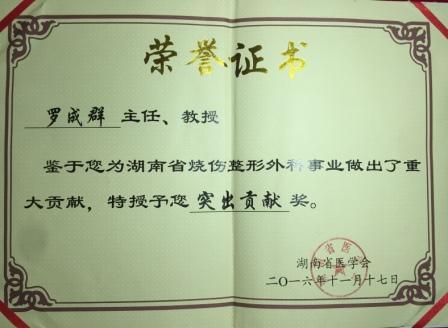 荣誉证书
罗成群 主任、教授
鉴于您为湖南省烧伤整形外科事业做出了重
大贡献，特授予您 突出贡献 奖。
湖南省医学会
二〇一六年十一月十七日